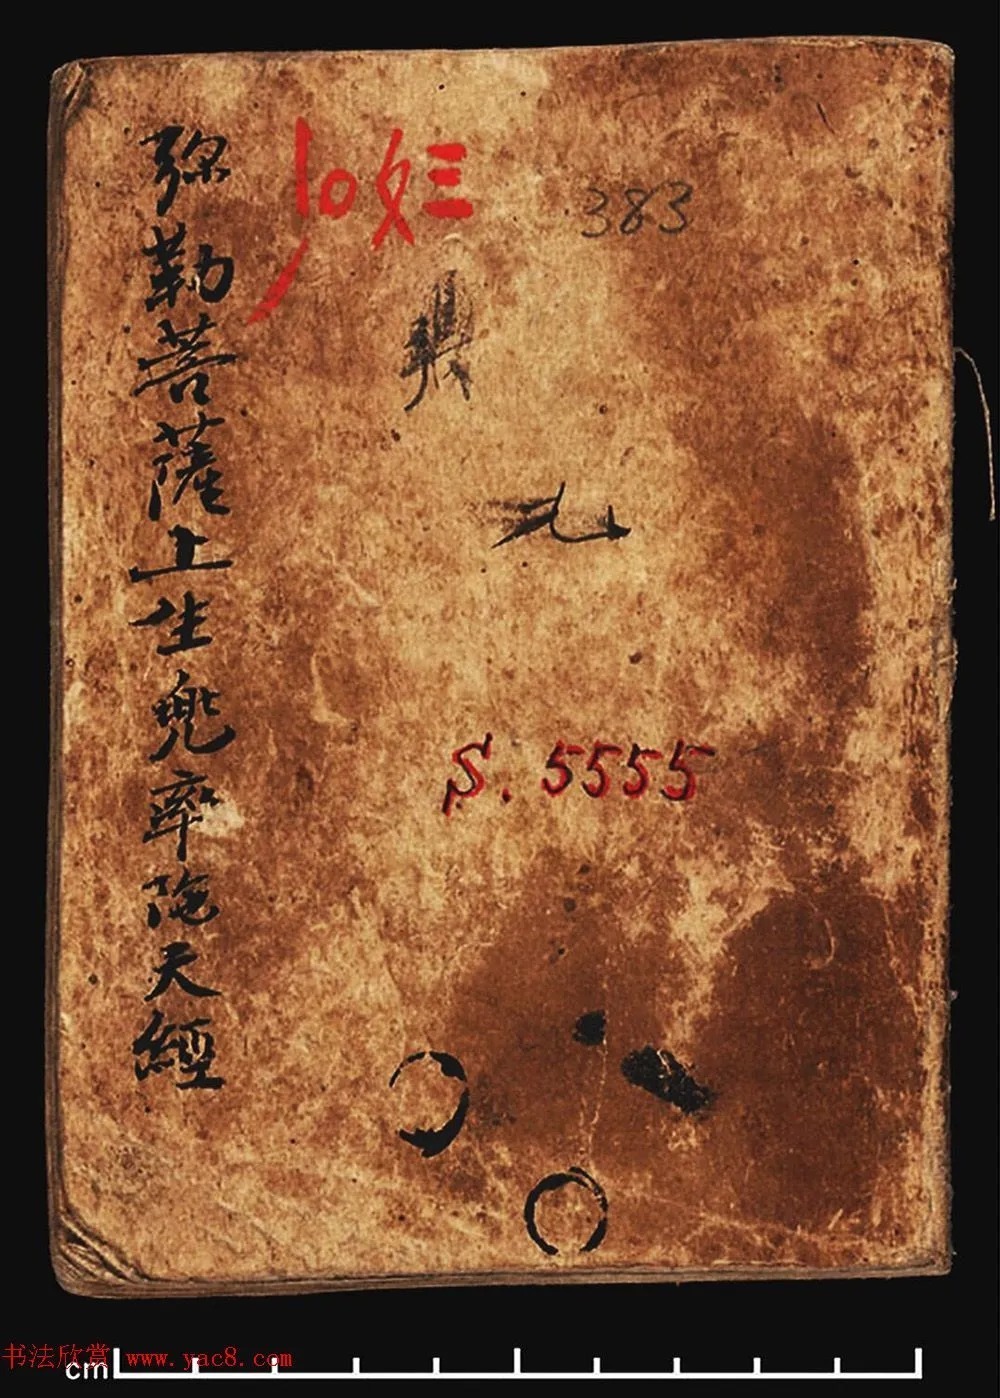 弥勒菩薩上生兜率陀天經
383
S. 5555
书法欣赏 www.yac8.com
cm